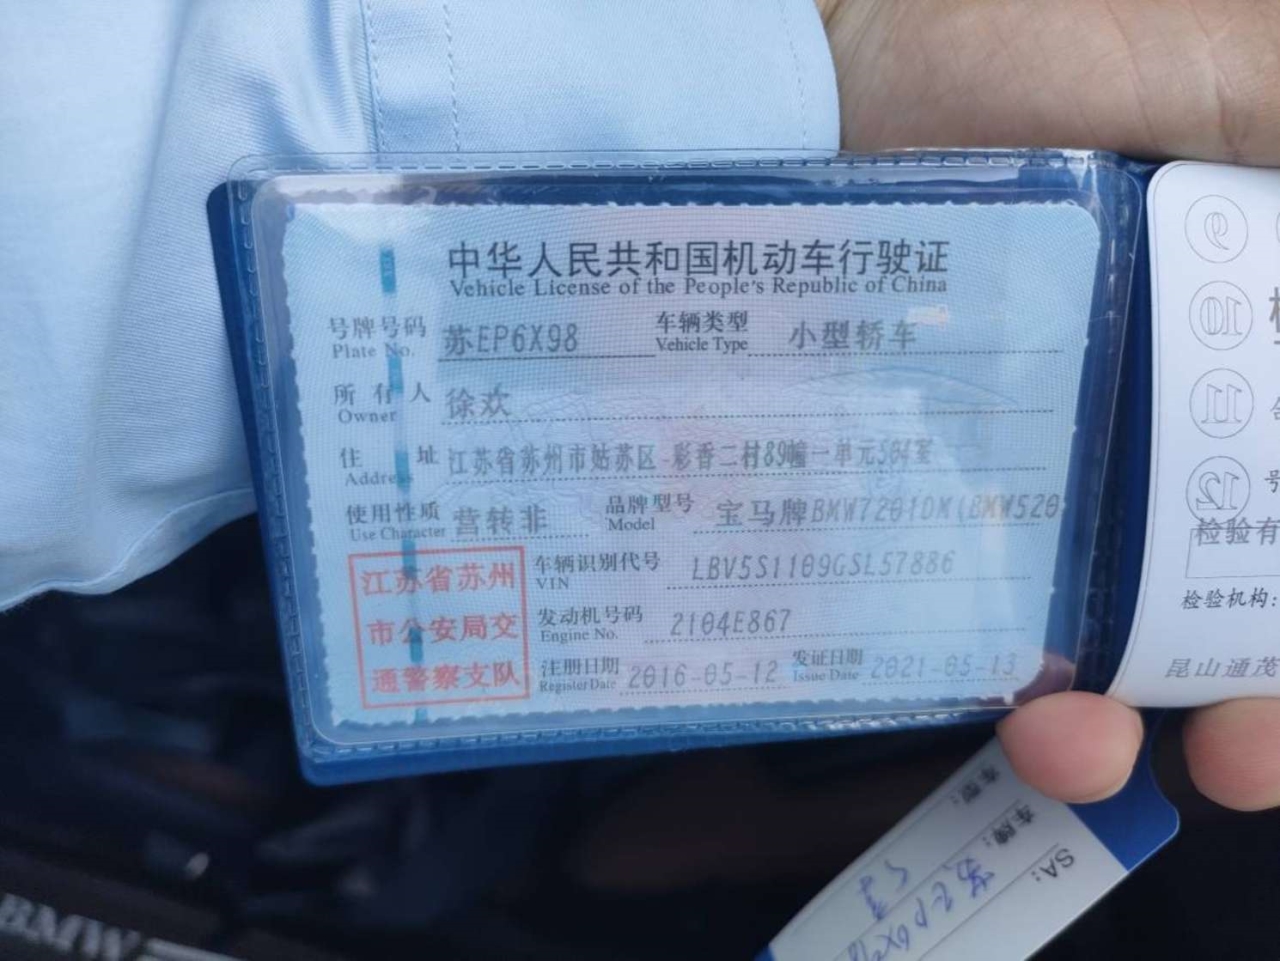 中华人民共和国机动车行驶证
Vehicle License of the People's Republic of China
号牌号码 苏EP6X98 车辆类型 小型轿车
Plate No. Vehicle Type
所有人 徐欢
Owner
住址 江苏省苏州市姑苏区 彩香二村89幢一单元504室
Address
使用性质 营转非 品牌型号 宝马牌BMW7201DM(BMW520
Use Character Model
江苏省苏州
市公安局交
通警察支队
车辆识别代号 LBV5S1109GSL57886
VIN
发动机号码 2104E867
Engine No.
注册日期 2016-05-12 发证日期 2021-05-13
Register Date Issue Date
9
10
11
12
检验有
检验机构:
昆山通茂
车型:
车牌:
SA:
BMW